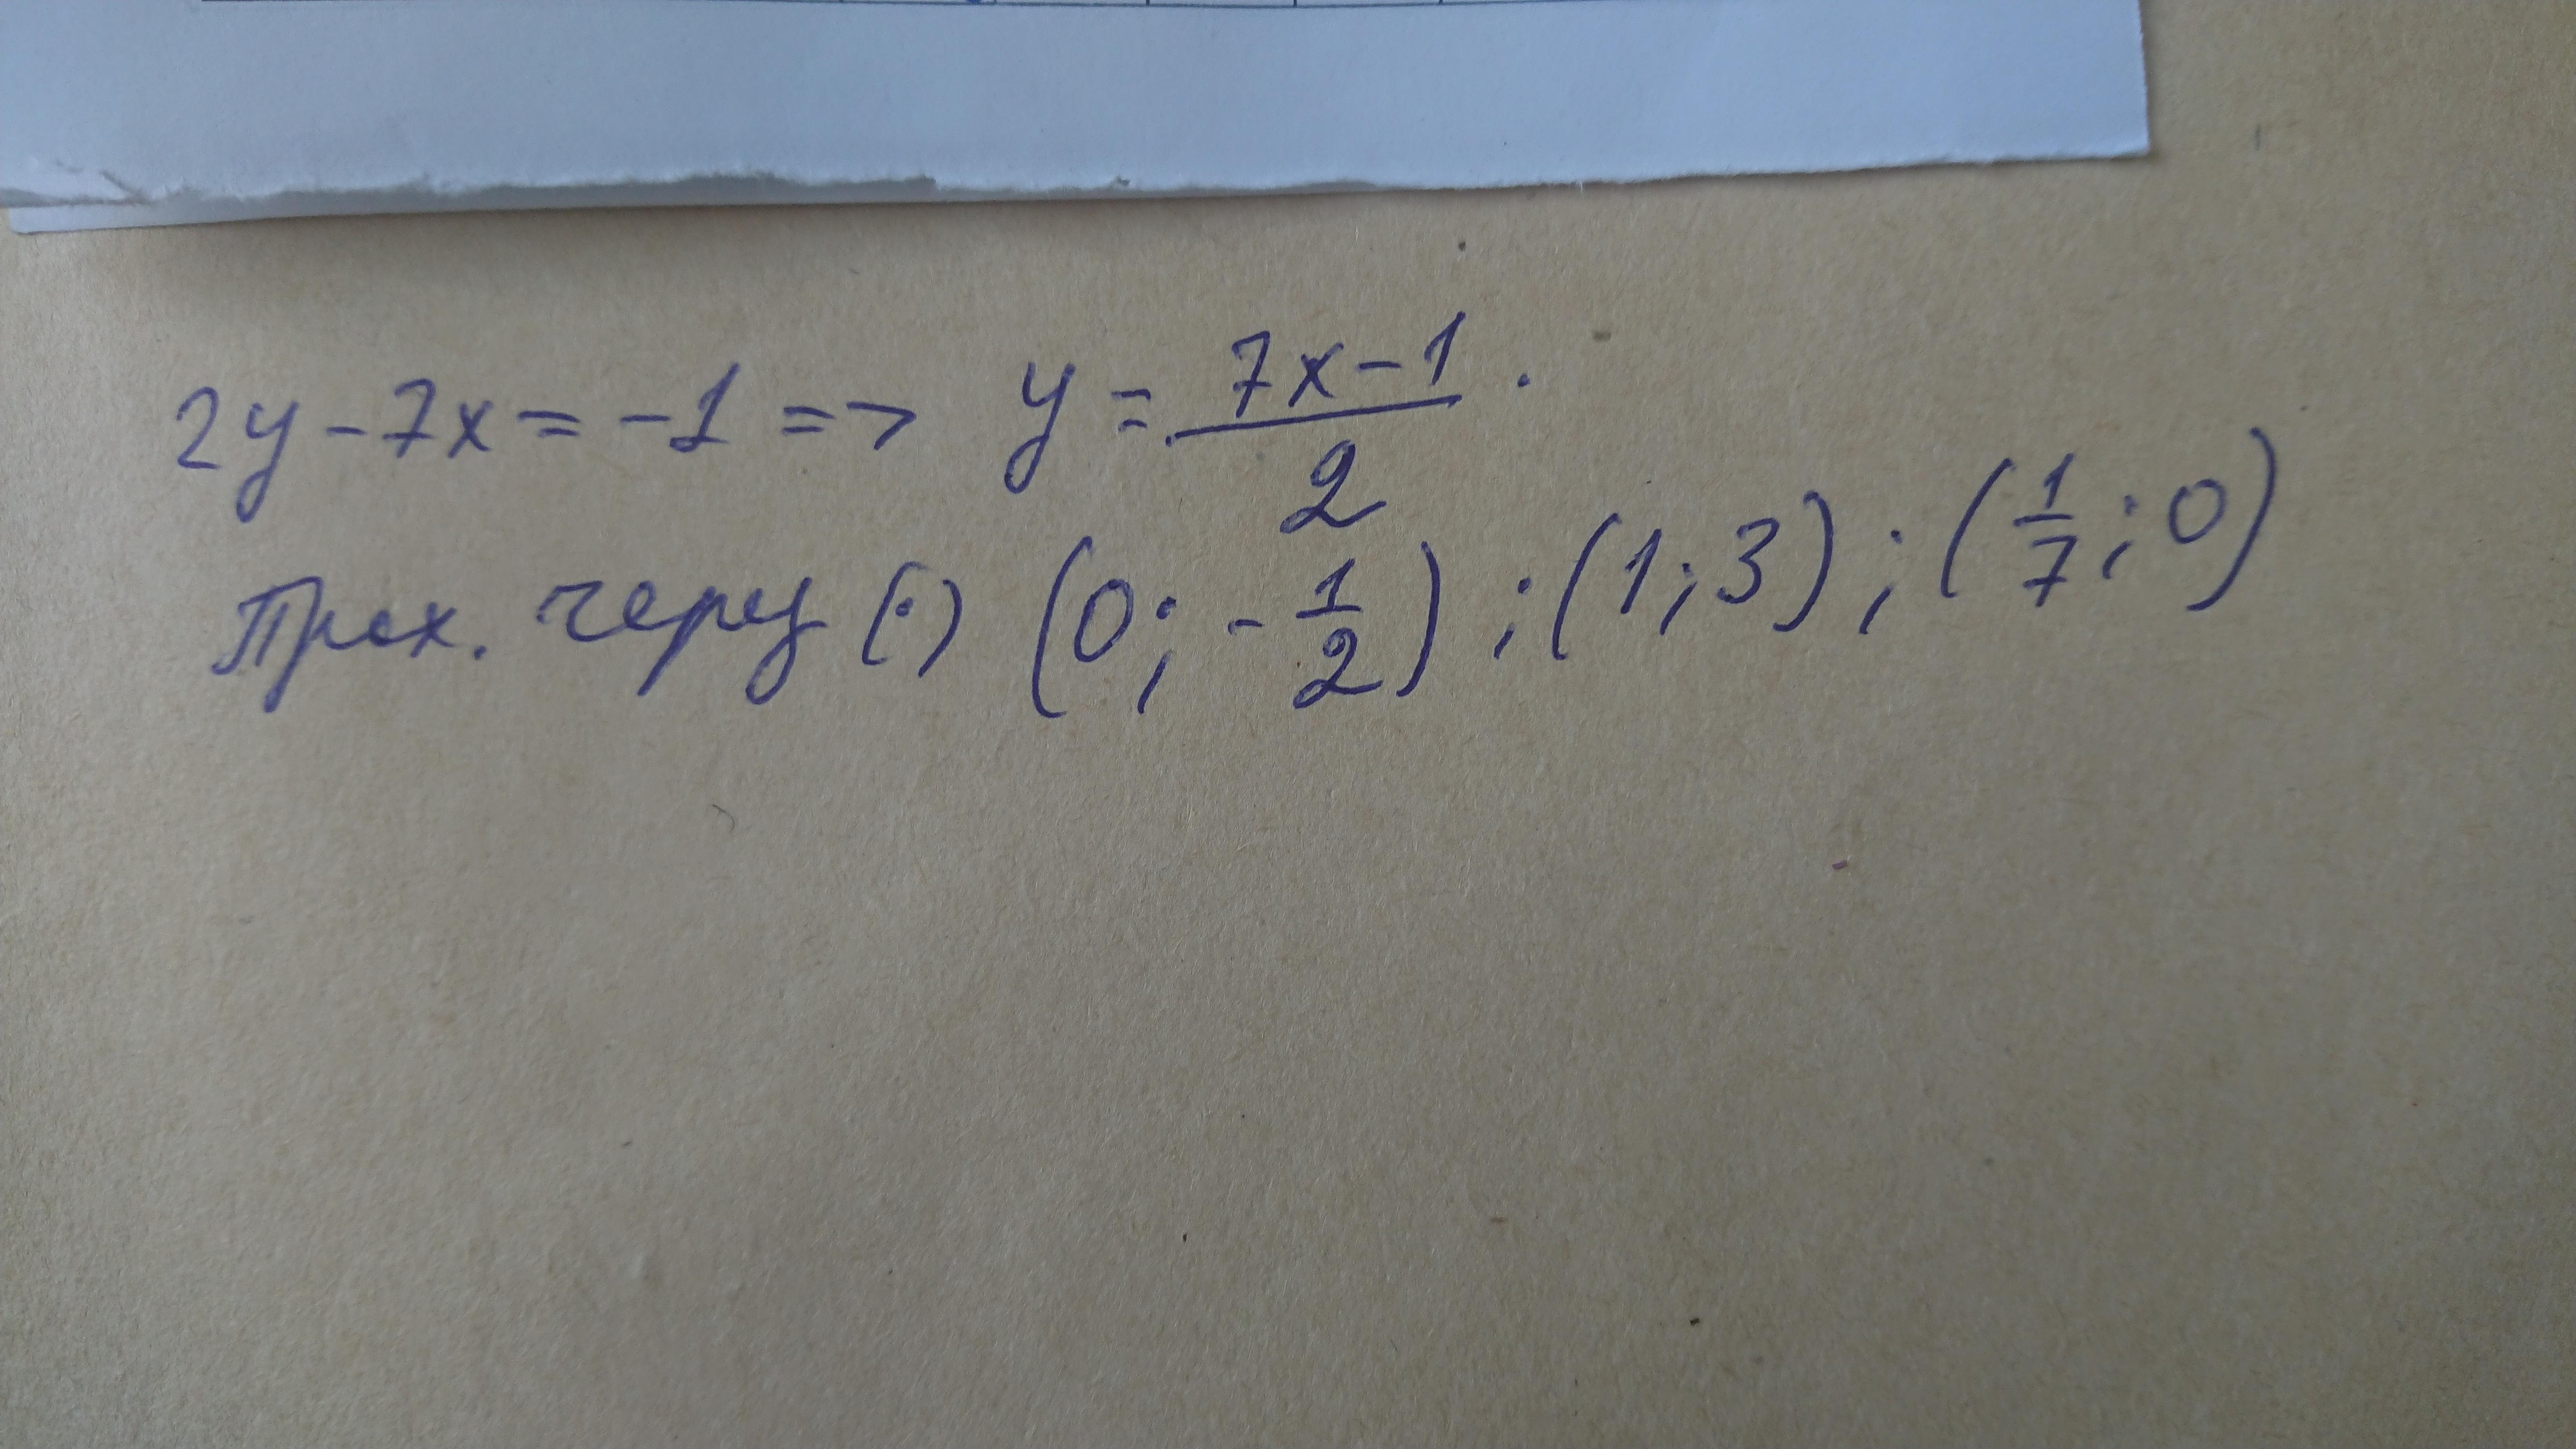 2y - 7x = -1 => y = \frac{7x-1}{2}.
Прох. через (·) (0; -\frac{1}{2}); (1; 3); (\frac{1}{7}; 0)